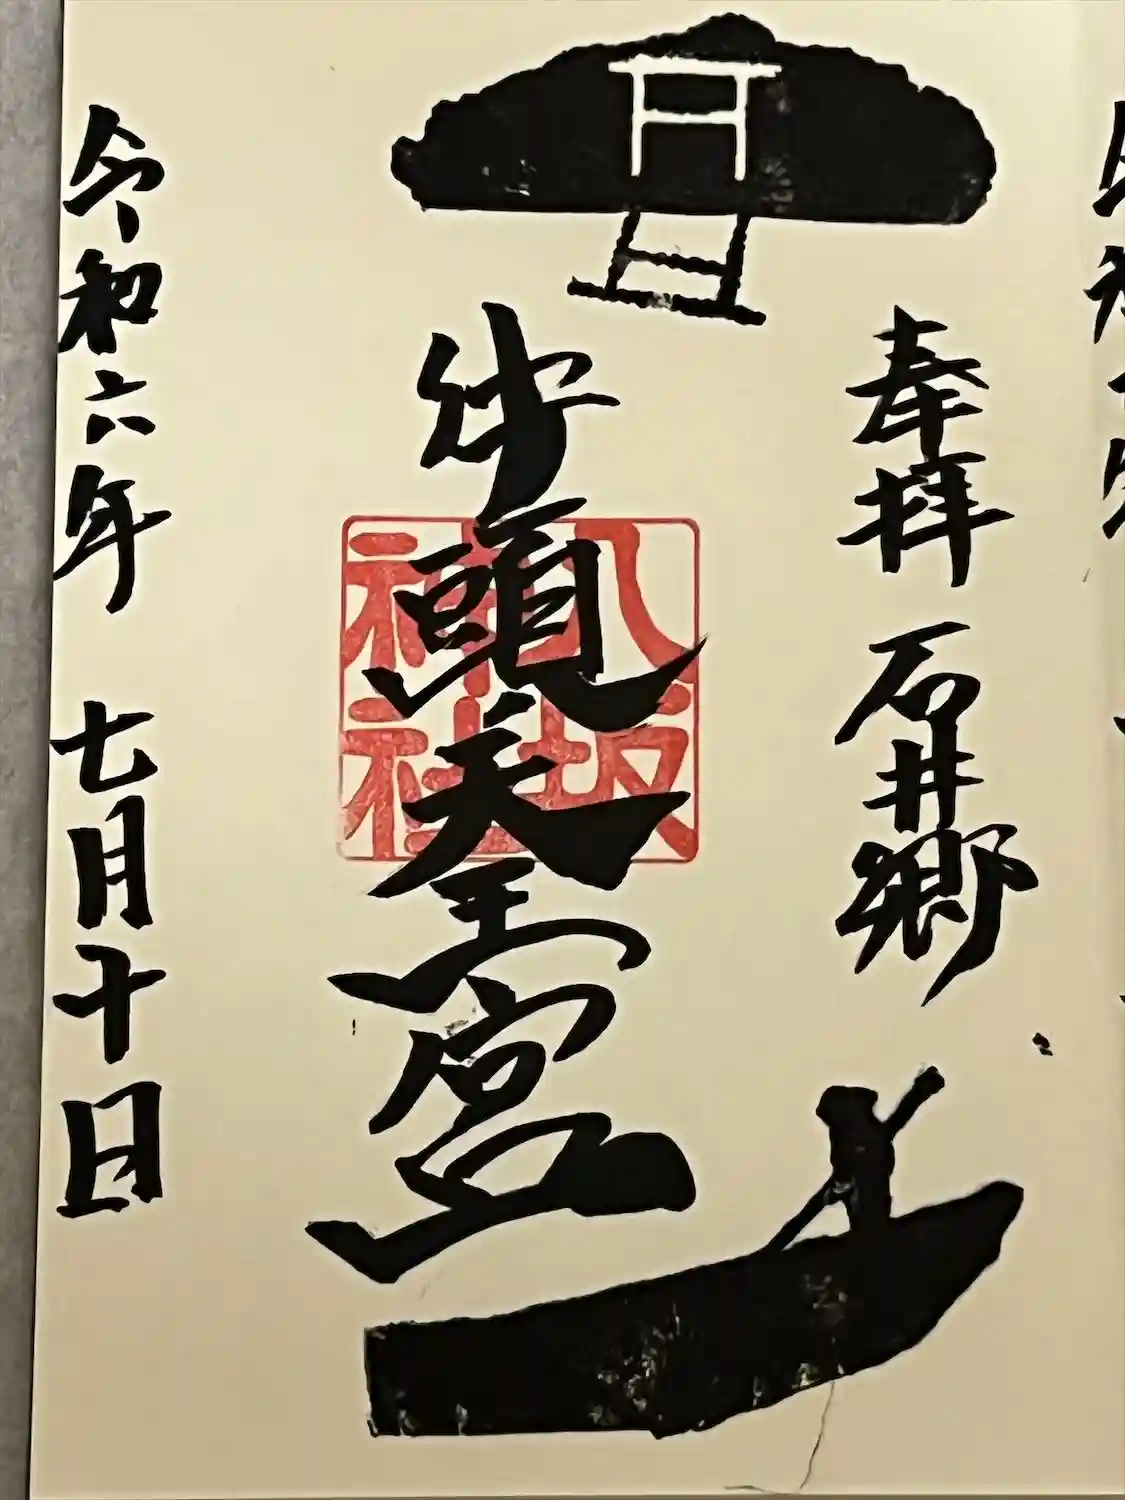 奉拝 石井郷
牛頭天王宮
八坂
神社
令和六年 七月十日